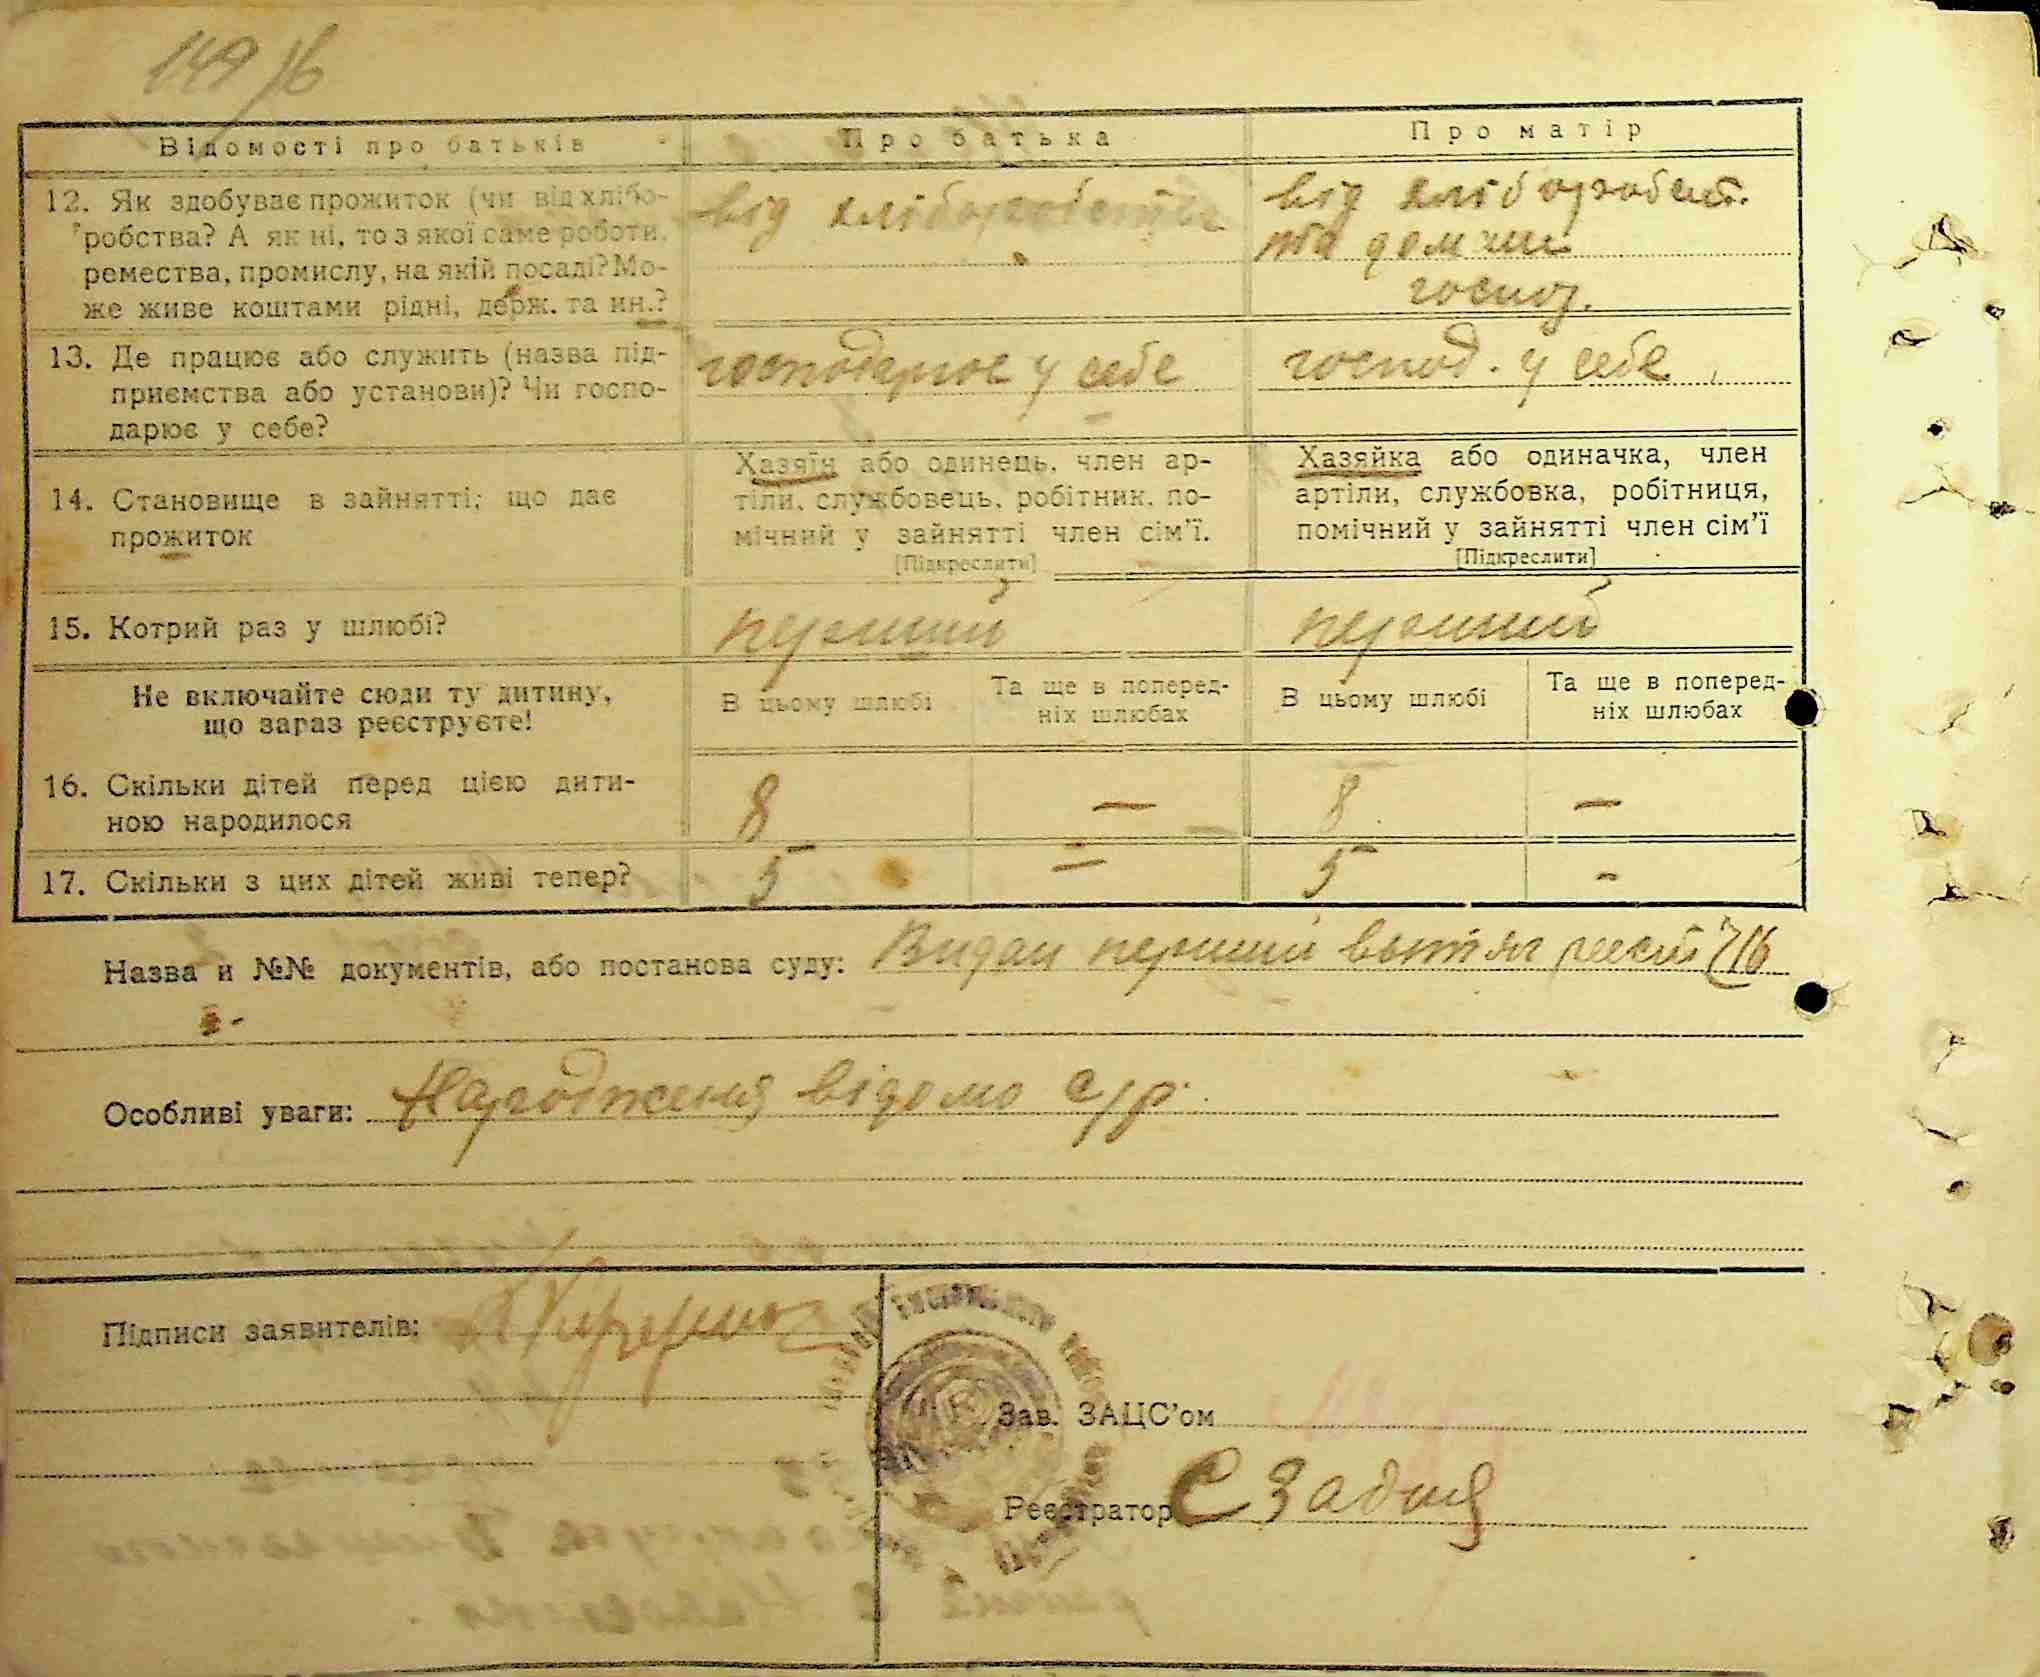 Відомості про батьків
Про батька
Про матір
12. Як здобуває прожиток (чи від хлібо-
робства? А як ні, то з якої саме роботи,
ремества, промислу, на якій посаді? Мо-
же живе коштами рідні, держ. та ин.?
від хліборобства
від хлібороб.
та домашн
господ.
13. Де працює або служить (назва під-
приємства або установи)? Чи госпо-
дарює у себе?
господарює у себе
господ. у себе
14. Становище в зайнятті; що дає
прожиток
Хазяїн або одинець, член ар-
тіли, службовець, робітник, по-
мічний у зайнятті член сім'ї.
[Підкреслити]
Хазяйка або одиначка, член
артіли, службовка, робітниця,
помічний у зайнятті член сім'ї
[Підкреслити]
15. Котрий раз у шлюбі?
перший
перший
Не включайте сюди ту дитину,
що зараз реєструєте!
В цьому шлюбі
Та ще в поперед-
ніх шлюбах
В цьому шлюбі
Та ще в поперед-
ніх шлюбах
16. Скільки дітей перед цією дити-
ною народилося
8 — 8 —
17. Скільки з цих дітей живі тепер?
5 — 5 -
Назва и №№ документів, або постанова суду: Видан перший витяг
Особливі уваги: Народженя відомо с/р.
Підписи заявителів:
Зав. ЗАЦС'ом
Реєстратор С Задня